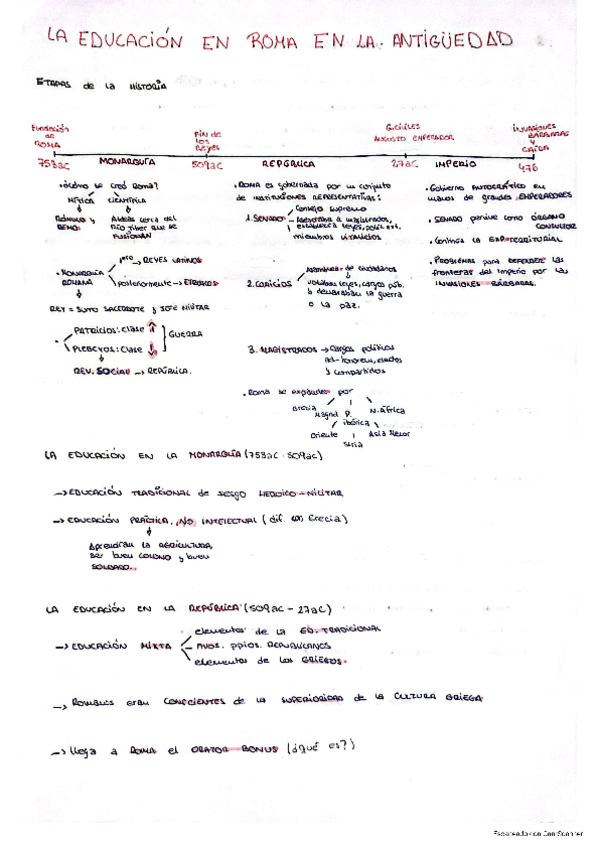 LA EDUCACIÓN EN ROMA EN LA ANTIGÜEDAD
ETAPAS de la HISTORIA
Fundación de ROMA
FIN de los Reyes
AUGUSTO EMPERADOR
INVASIONES BÁRBARAS y CAÍDA
753aC MONARQUÍA 509aC REPÚBLICA 27aC IMPERIO 476
¿Cómo se creó Roma?
MÍTICA CIENTÍFICA
RÓMULO y REMO
Aldeas cerca del RÍO Tíber que se FUSIONAN
MONARQUÍA ROMANA
1ero → REYES LATINOS
posteriormente → ETRUSCOS
REY = SUMO SACERDOTE y JEFE MILITAR
PATRICIOS: Clase ↑
PLEBEYOS: Clase ↓
GUERRA
REV. SOCIAL → REPÚBLICA.
• ROMA es gobernada por un conjunto
de INSTITUCIONES REPRESENTATIVAS:
1. SENADO
Consejo supremo
miembros vitalicios
2. COMICIOS
Asamblea de ciudadanos
votaban leyes, cargos púb.
o declaraban la guerra
o la paz.
3. MAGISTRADOS → Cargos políticos
y compartidos
• Roma se expandes por
Grecia
P. ibérica
N. África
Oriente
Siria
Asia Menor
• Gobierno AUTOCRÁTICO en
manos de grandes EMPERADORES
• SENADO pervive como ÓRGANO
CONSULTOR
• Continúa la EXP. TERRITORIAL
• PROBLEMAS para DEFENDER las
fronteras del Imperio por las
INVASIONES BÁRBARAS.
LA EDUCACIÓN EN LA MONARQUÍA (753aC - 509aC)
→ EDUCACIÓN TRADICIONAL de sesgo HEROICO-MILITAR
→ EDUCACIÓN PRÁCTICA, NO INTELECTUAL (dif. con Grecia)
Aprendían la AGRICULTURA,
ser buen COLONO y buen
SOLDADO.
LA EDUCACIÓN EN LA REPÚBLICA (509aC - 27aC)
→ EDUCACIÓN MIXTA
elementos de la ED. TRADICIONAL
nvos. ppios. REPUBLICANOS
elementos de los GRIEGOS.
→ Romanos eran CONSCIENTES de la SUPERIORIDAD de la CULTURA GRIEGA
→ llega a ROMA el ORATOR BONUS (¿qué es?)
Escaneado con CamScanner